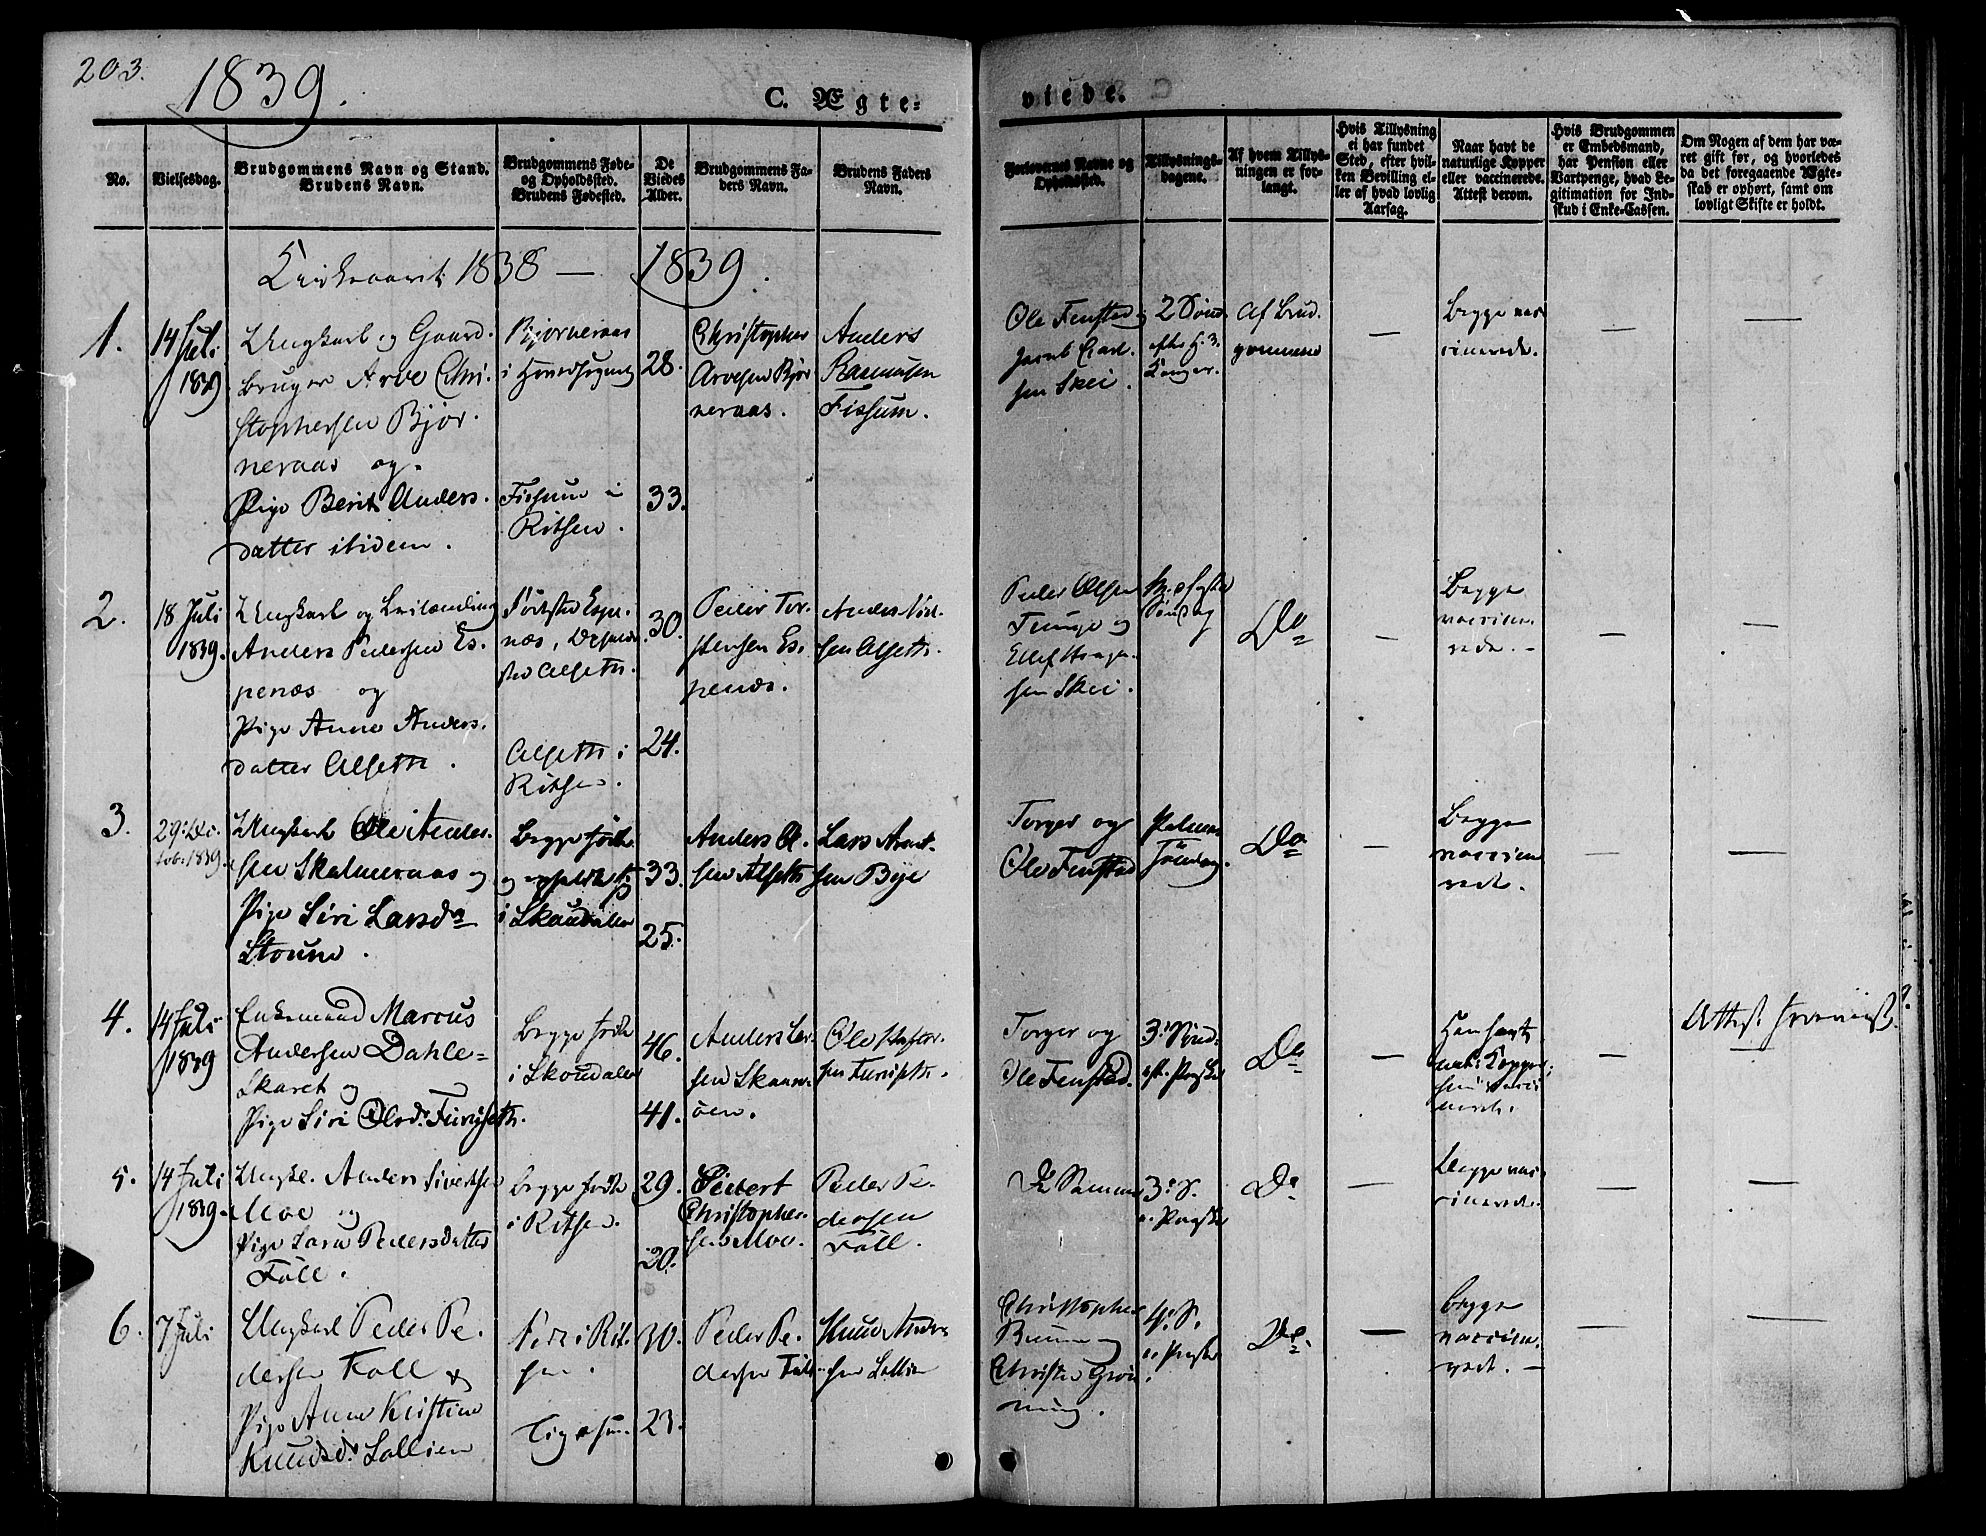 203.
1839.
C. Ægte-
viede.
No.
Vielsesdag.
Brudgommens Navn og Stand.
Brudens Navn.
Brudgommens Føde-
og Opholdssted.
Brudens Fødested.
De
Viedes
Alder.
Brudgommens Fa-
ders Navn.
Brudens Faders
Navn.
Forlovernes Navne og
Opholdssted.
Tillysnings-
dagene.
Af hvem Tillys-
ningen er for-
langt.
Hvis Tillysning
ei har fundet
Sted, efter hvil-
ken Bevilling el-
ler af hvad lovlig
Aarsag.
Naar havt de
naturlige Kopper
eller vaccinerede.
Attest derom.
Hvis Brudgommen
er Embedsmand,
har Pension eller
Vartpenge, hvad Le-
gitimation for Ind-
skud i Enke-Cassen.
Om Nogen af dem har væ-
ret gift før, og hvorledes
da det foregaaende Ægte-
skab er ophørt, samt om
lovligt Skifte er holdt.
Kirkeaaret 1838 — 1839.
1.
14 Juli
1839
Ungkarl og Gaard-
bruger Arve Chri-
stophersen Bjør-
neraas og
Pige Berit Anders-
datter ibidem.
Bjørneraas
i
Fissum i
Ritsen.
28.
33.
Christopher
Arvesen Bjør
neraas.
Anders
Rasmusen
Fissum.
Ole Fenstad og
Jacob Carl-
sen Skei.
2 Sønd.
efter H. 3
Konger.
Af Brud
gommen
—
Begge vac
cinerede.
—
—
2.
18 Juli
1839.
Ungkarl og
Anders Pedersen Es-
penæs og
Pige Anne Anders-
datter Alseth.
Fødested Espe-
næs,
Alseth.
Alseth i
Ritsen.
30.
24.
Peder Tor-
stensen Es-
penæs.
Anders
sen Alseth.
Peder Olsen
Tunge og
Ellef
sen Skei.
Søndag
Do
—
Begge
vaccine-
rede. —
—
—
3.
29: De.
1839.
Ungkarl Ole Anders-
sen Skalmeraas og
Pige Siri Larsda
Stoune.
Begge fødte
og
i Skaudalen
33.
25.
Anders Ol-
sen Alseth
Lars Arnt-
sen Bye
Torger og
Ole Fenstad
Palme
Søndag.
Do
—
Begge
vaccine
rede.
—
—
4.
14 Juli
1839
Enkemand Marcus
Andersen Dahle-
Skaret og
Pige Siri Olsd: Furuseth.
Begge fødte
i Skaudalen
46.
41.
Anders Lar-
sen Skaun-
øien.
Ole
sen Furuseth.
Torger og
Ole Fenstad.
3: Sønd:
eft. Paaske
Do
—
Han havt
nat: Kopper;
hun vacci
neret.
—
Attest
—
5.
14 Juli
1839.
Ungk. Anders Sivertsen
Moe og
Pige Pedersdatter
Fall.
Begge fødte
i Ritsen.
29.
20.
Sivert
Christopher-
sen Moe.
Peder Pe-
dersen
Fall.
De Samme
3: S.
e. Paaske
Do
—
Begge vac
cinerede.
—
—
6.
7 Juli
Ungkarl Peder Pe-
dersen Fall &
Pige Anne Kristine
Knudsd: Lallien
Født i Rit-
sen.
Ligesaa.
30.
23.
Peder Pe-
dersen Fall
Knud Ander-
sen Lallien
Christopher
Buun og
Christen Grøn
ning.
4: S.
e. Paaske
Do.
—
Begge
vaccine-
rede. —
—
—